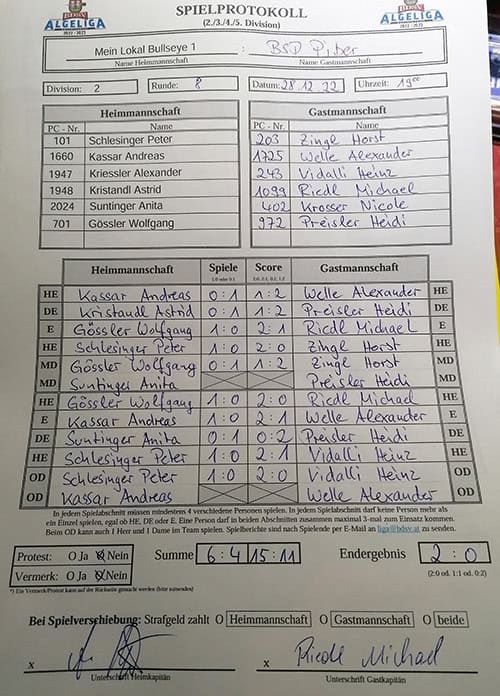 BDSV
ALGELIGA
2022 - 2023
SPIELPROTOKOLL
(2./3./4./5. Division)
BDSV
ALGELIGA
2022 - 2023
Mein Lokal Bullseye 1 : BSD Piber
Name Heimmannschaft Name Gastmannschaft
Division: 2 Runde: 8 Datum: 28.12.22 Uhrzeit: 19⁰⁰
Heimmannschaft Gastmannschaft
PC - Nr. Name PC - Nr. Name
101 Schlesinger Peter 203 Zingl Horst
1660 Kassar Andreas 1725 Welle Alexander
1947 Kriessler Alexander 243 Vidalli Heinz
1948 Kristandl Astrid 1099 Riedl Michael
2024 Suntinger Anita 402 Krosser Nicole
701 Gössler Wolfgang 972 Preisler Heidi
Heimmannschaft Spiele Score Gastmannschaft
1:0 oder 0:1 2:0, 2:1, 0:2, 1:2
HE Kassar Andreas 0:1 1:2 Welle Alexander HE
DE Kristandl Astrid 0:1 1:2 Preisler Heidi DE
E Gössler Wolfgang 1:0 2:1 Riedl Michael E
HE Schlesinger Peter 1:0 2:0 Zingl Horst HE
MD Gössler Wolfgang 0:1 1:2 Zingl Horst MD
MD Suntinger Anita Preisler Heidi MD
HE Gössler Wolfgang 1:0 2:0 Riedl Michael HE
E Kassar Andreas 1:0 2:1 Welle Alexander E
DE Suntinger Anita 0:1 0:2 Preisler Heidi DE
HE Schlesinger Peter 1:0 2:1 Vidalli Heinz HE
OD Schlesinger Peter 1:0 2:0 Vidalli Heinz OD
OD Kassar Andreas Welle Alexander OD
In jedem Spielabschnitt müssen mindestens 4 verschiedene Personen spielen. In jedem Spielabschnitt darf keine Person mehr als
ein Einzel spielen, egal ob HE, DE oder E. Eine Person darf in beiden Abschnitten zusammen maximal 3-mal zum Einsatz kommen.
Beim OD kann auch 1 Herr und 1 Dame im Team spielen. Spielberichte sind nach Spielende per E-Mail an liga@bdsv.at zu senden.
Protest: O Ja O Nein Summe 6:4 15:11 Endergebnis 2:0
Vermerk: O Ja O Nein (2:0 od. 1:1 od. 0:2)
*) Ein Vermerk/Protest kann auf der Rückseite gemacht werden (bitte ankreuzen)
Bei Spielverschiebung: Strafgeld zahlt O Heimmannschaft O Gastmannschaft O beide
x x Riedl Michael
Unterschrift Heimkapitän Unterschrift Gastkapitän